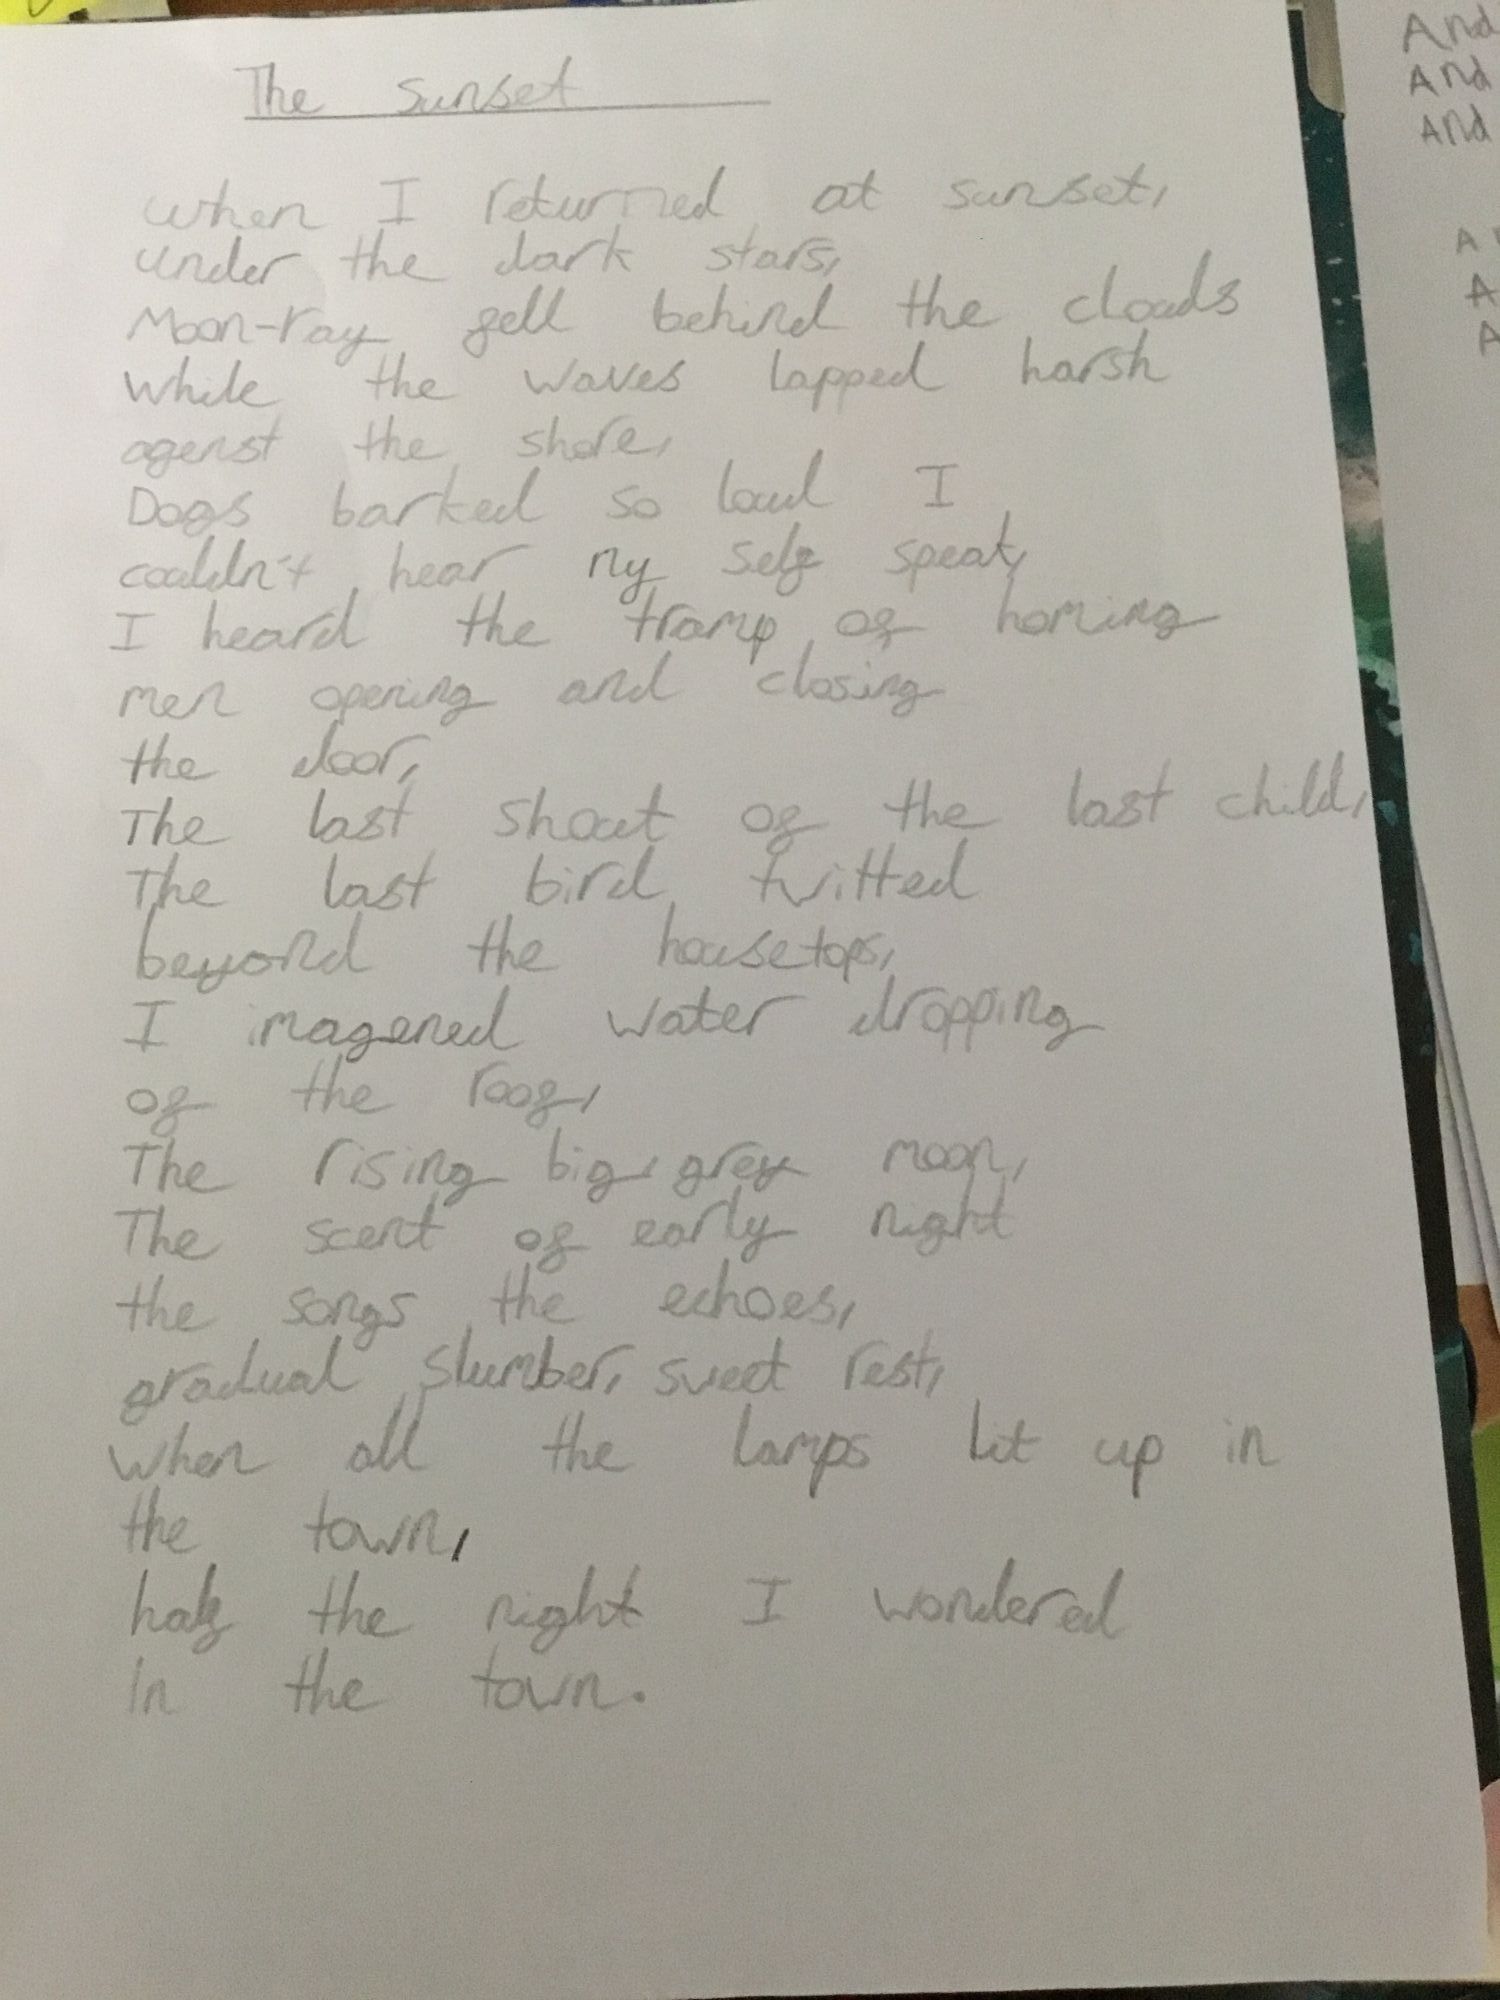 The Sunset
when I returned at sunset,
under the dark stars,
Moon-ray fell behind the clouds
While the waves lapped harsh
agenst the shore,
Dogs barked so loud I
couldn't hear my self speak,
I heard the tramp of homing
men opening and closing
the door,
The last shout of the last child,
The last bird twitted
beyond the housetops,
I imagened water dropping
of the roof,
The rising big, grey moon,
The scent of early night
the songs the echoes,
gradual slumber, sweet rest,
When all the lamps lit up in
the town,
half the night I wondered
In the town.
And
And
And
A
A
A